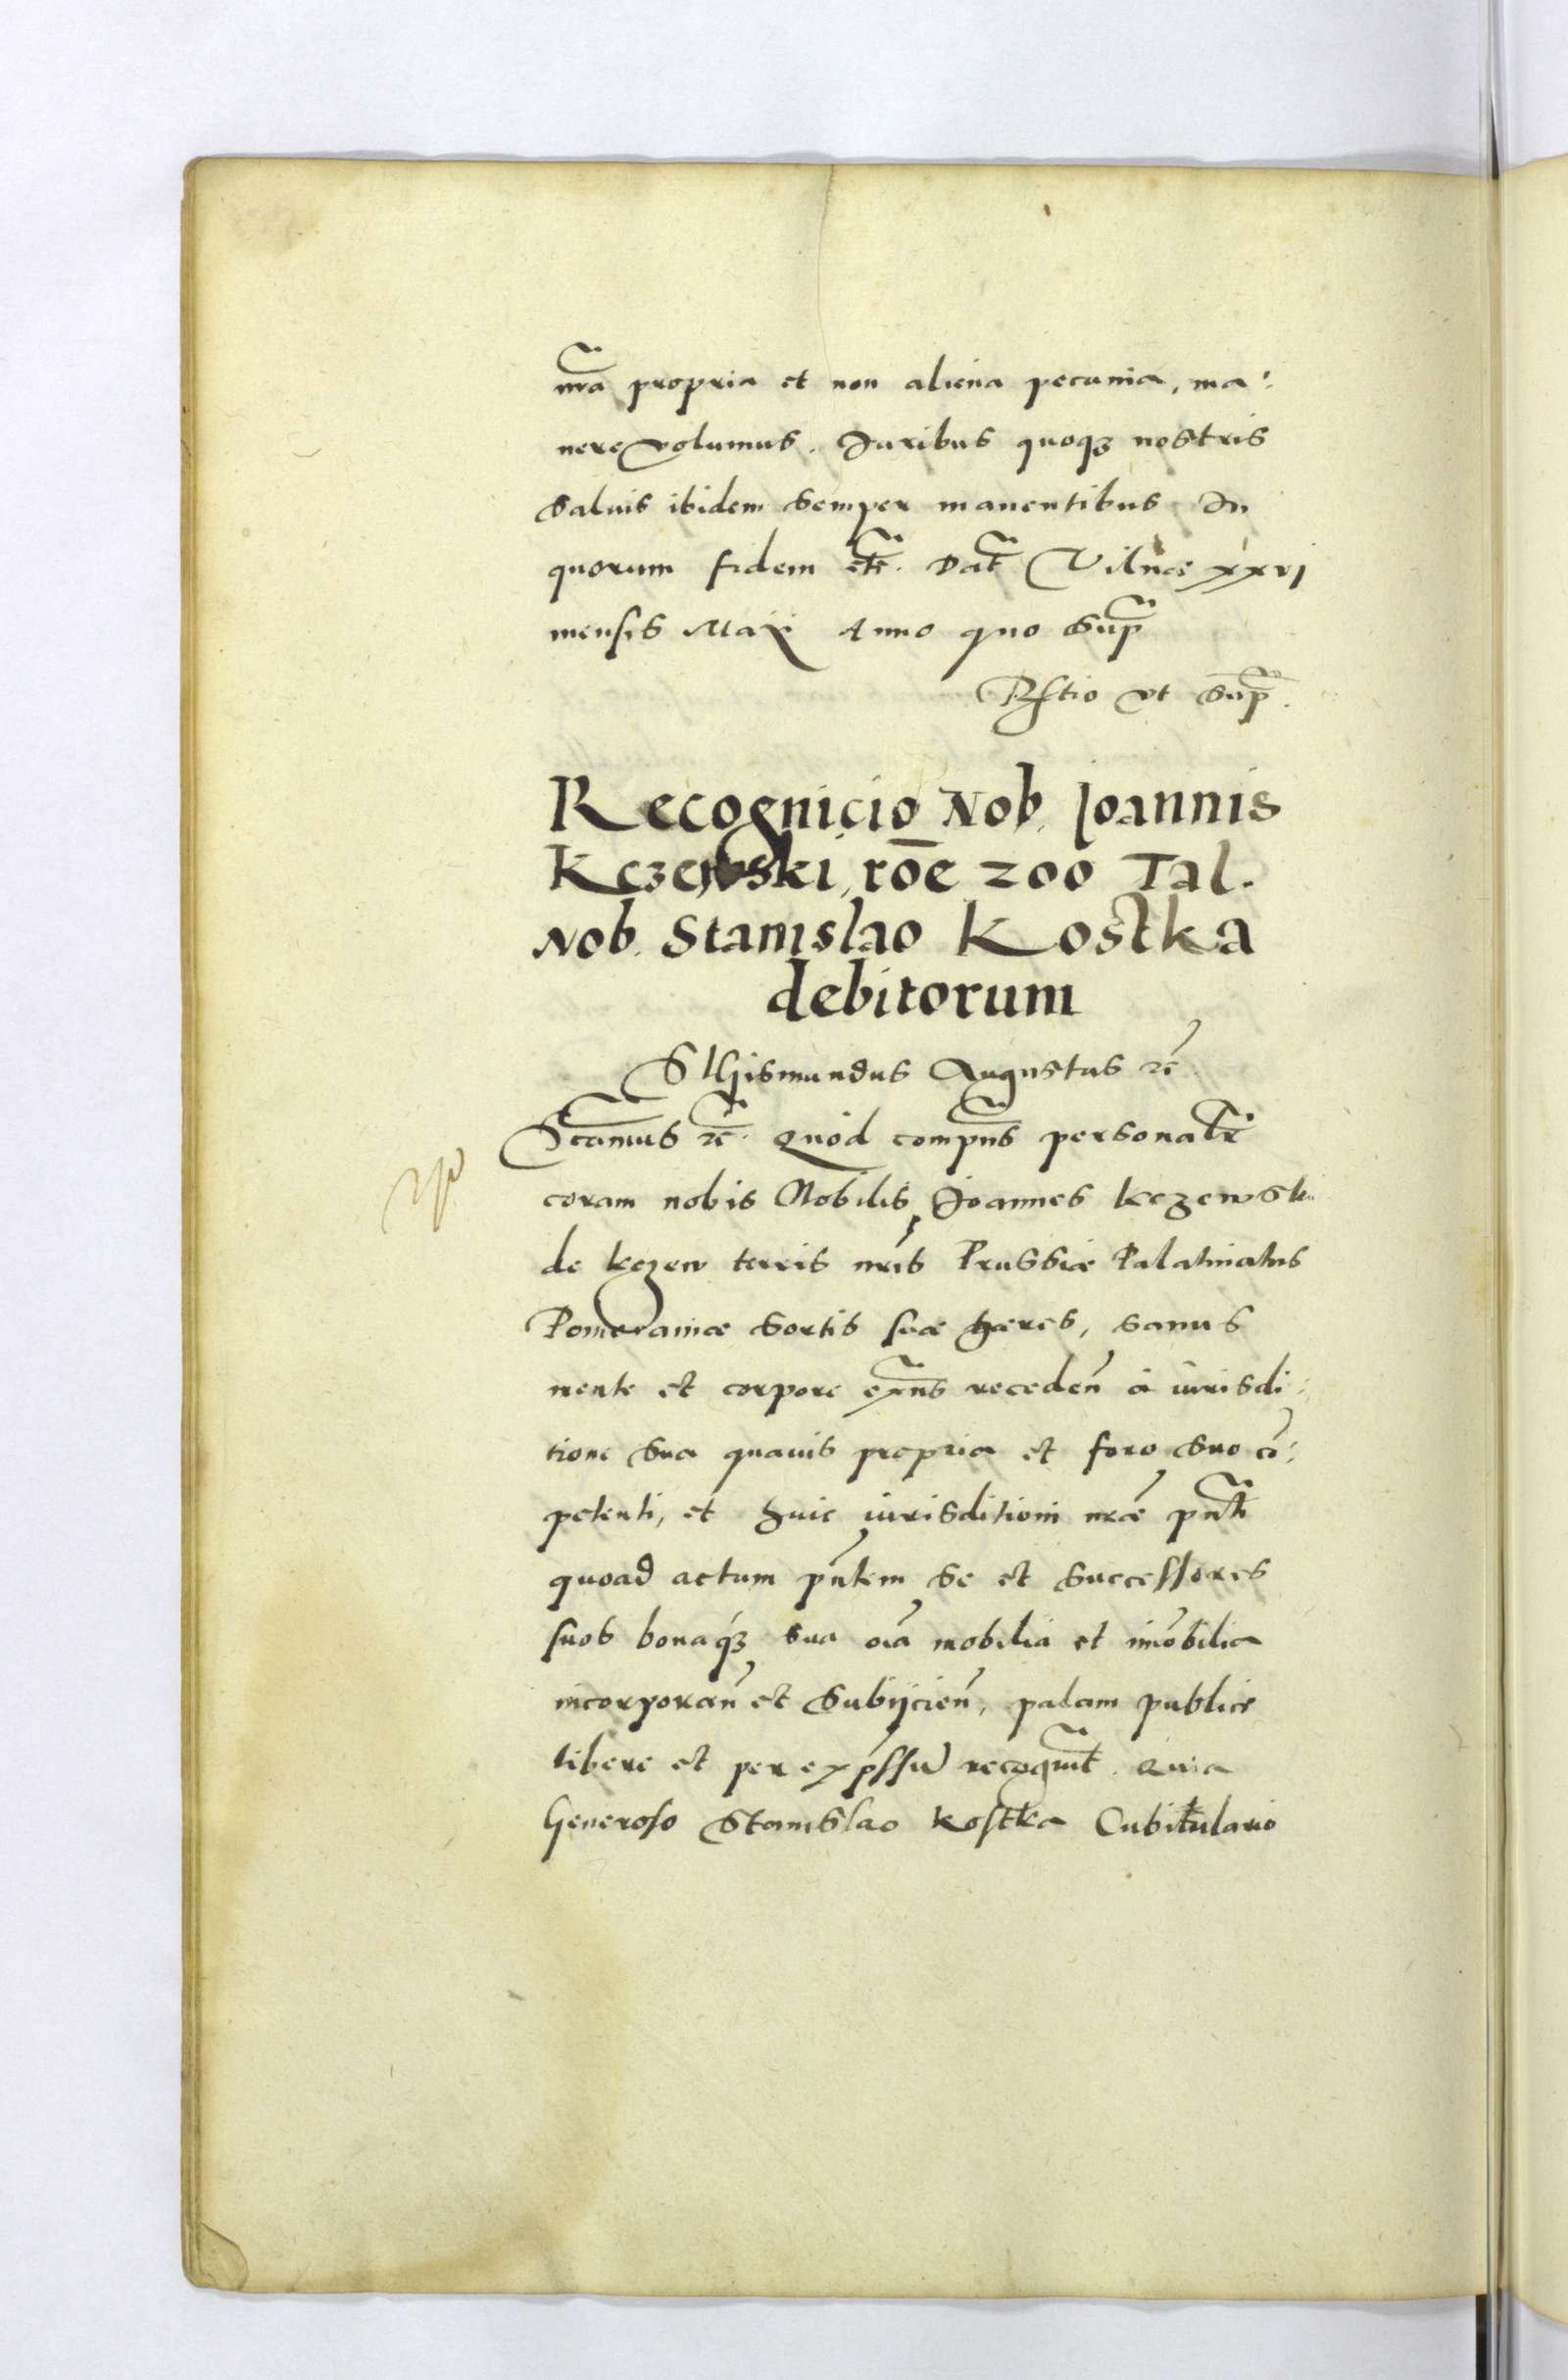 nr̃a propria et non aliena pecunia, ma:
nere volumus. Iuribus quoqȝ nostris
saluis ibidem semper manentibus In
quorum fidem etc̃. Dat̃ Vilnæ xxvi
mensis Maij Anno quo sup̃
R̃stio vt sup̃.
Recognicio Nob. Joannis
Kczewski, rõe 200 Tal.
Nob. Stanislao Kostka
debitorum
SIgismundus Augustus rẽ
Sc̃amus rẽ. Quod comp̃ns personalr̃
coram nobis Nobilis Joannes Kczewski
de Kczew terris nr̃is Prussiæ Palatinatus
Pomeraniæ sortis suæ hæres, sanus
mente et corpore exñs receden̄ à iurisdi:
tione sua quauis propria et foro suo cõ:
petenti, et huic iurisditioni nr̃æ pñti
quoad actum pñtem se et successores
suos bonaqȝ sua oĩa mobilia et im̃obilia
incorporan̄ et subijcien̄, palam publice
libere et per exp̃ssũ recognit̃. Quia
Generoso Stanislao Kostka Cubiculario